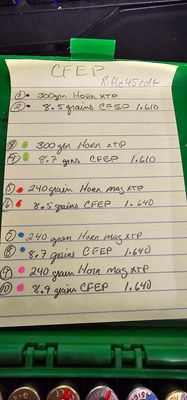 CFEP
Rifle 45 colt
① • 300gm Horn XTP
② • 8.5 grains CFEP 1.610
③ 300 gm Horn XTP
④ 8.7 grns CFEP 1.610
⑤ 240 grain Horn mag XTP
⑥ 8.5 grains CFEP 1.640
⑦ 240 grain Horn mag XTP
⑧ 8.7 grains CFEP 1.640
⑨ 240 grain Horn mag XTP
⑩ 8.9 grains CFEP 1.640